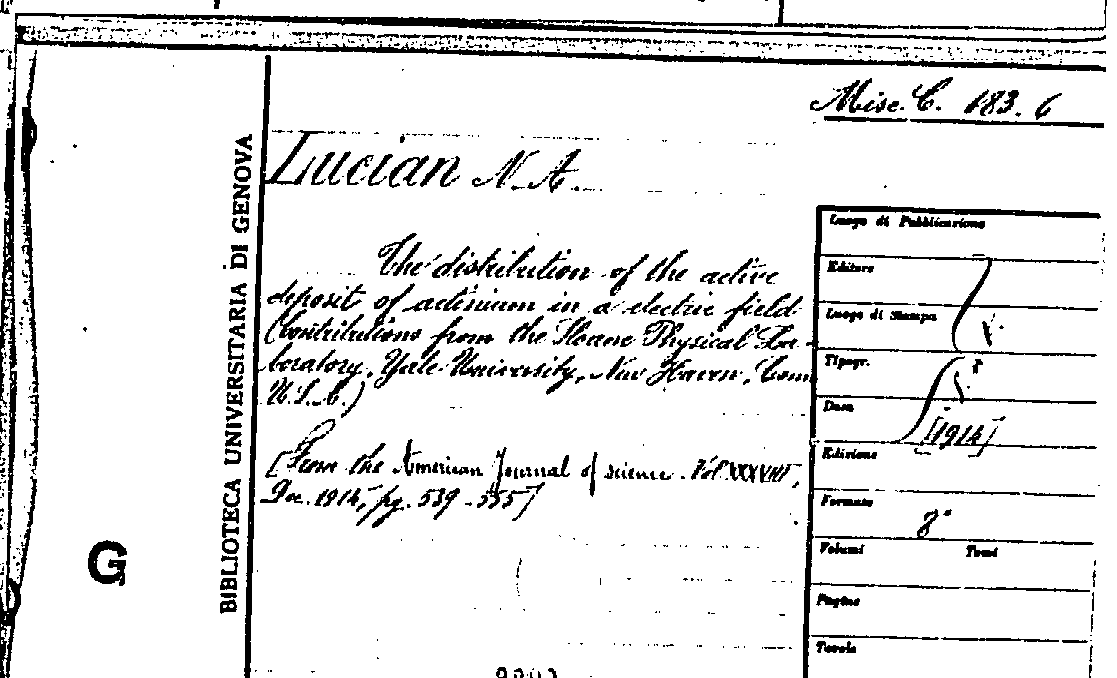 Misc. C. 183. 6
Lucian N. A.
The distribution of the active
deposit of actinium in a electric field
(Contributions from the Sloane Physical La-
boratory, Yale University, New Haven, Conn
U.S.A.)
[From the American Journal of science. Vol XXXVIII,
Dec. 1914, pg. 539-555]
BIBLIOTECA UNIVERSITARIA DI GENOVA
G
Luogo di Pubblicazione
Editore
Luogo di Stampa
Tipogr.
Data [1914]
Edizione
Formato 8°
Volumi Tomi
Pagine
Tavole